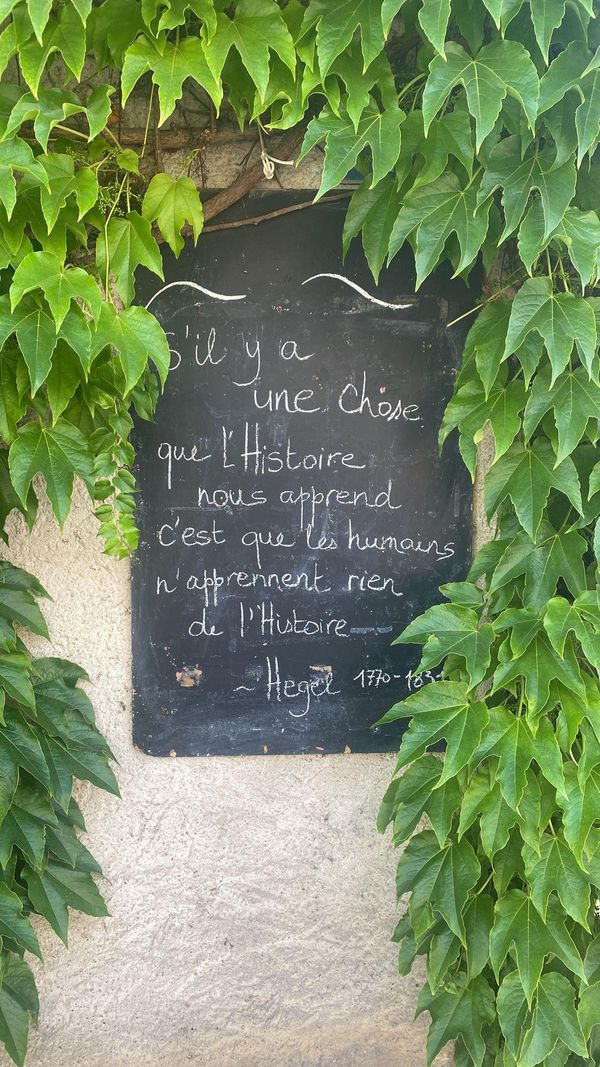 S'il y a
une chose
que l'Histoire
nous apprend
c'est que les humains
n'apprennent rien
de l'Histoire
~ Hegel 1770-1831